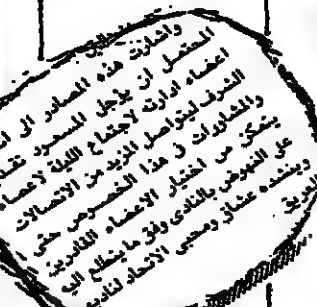 واشارت هذه المصادر الى ان
المحتمل ان يؤجل المسعود تقد
اعضاء ادارته لاجتماع الليلة لاعضاء
الشرف ليتواصل المزيد من الاتصالات
والمشاورات في هذا الخصوص حتى
يتمكن من اختيار الاعضاء القادرين
على النهوض بالنادي وفق ما يتطلع اليه
وينشده عشاق ومحبي الاتحاد لناديهم
العريق.